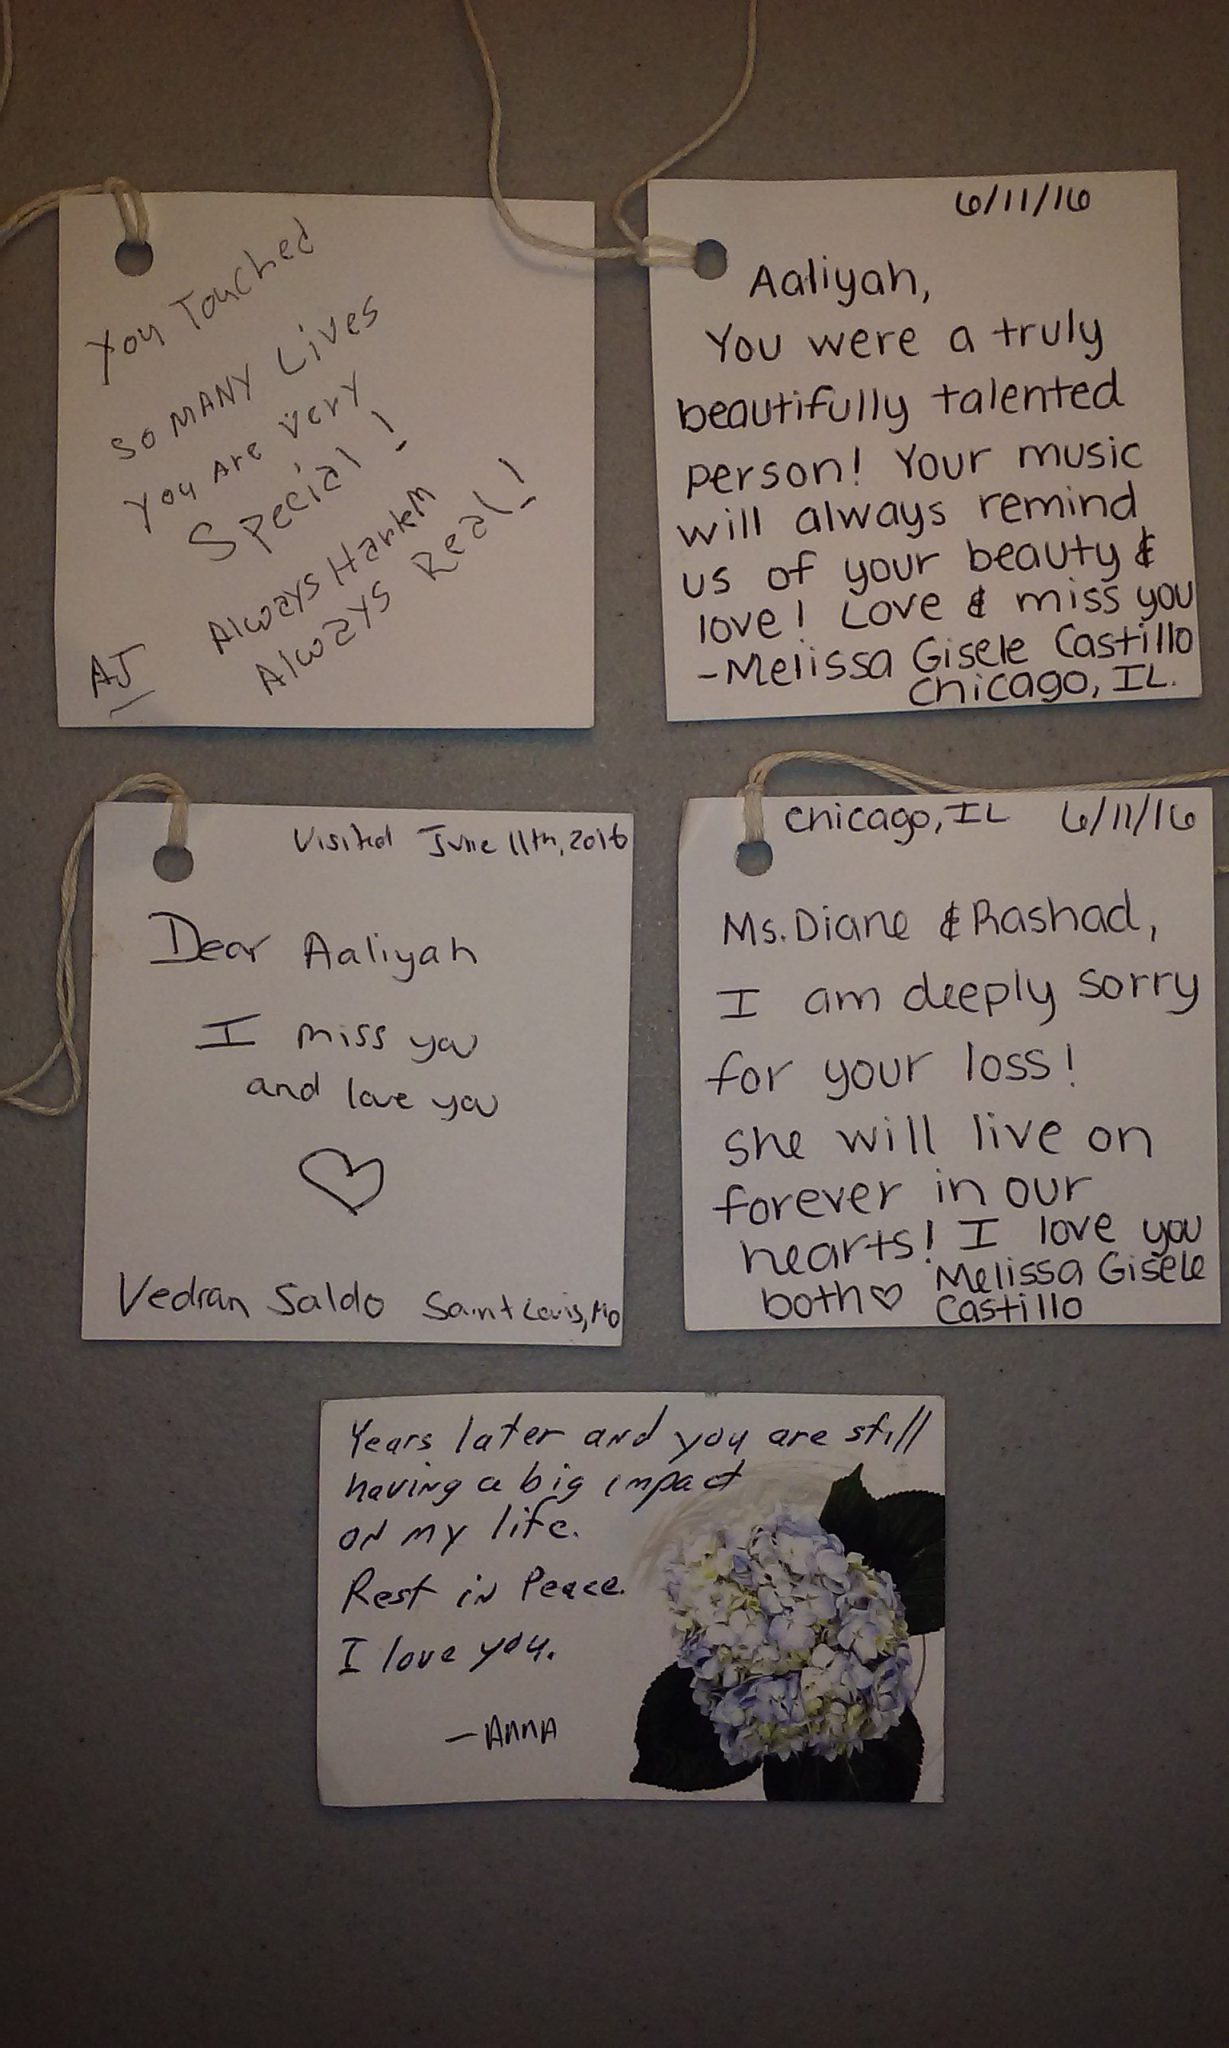 You Touched
so MANY Lives
You Are Very
Special!
Always Harlem
Always Real!
AJ
6/11/16
Aaliyah,
You were a truly
beautifully talented
person! Your music
will always remind
us of your beauty &
love! Love & miss you
-Melissa Gisele Castillo
Chicago, IL.
Visited June 11th, 2016
Dear Aaliyah
I miss you
and love you
Vedran Saldo Saint Louis, Mo
Chicago, IL 6/11/16
Ms. Diane & Rashad,
I am deeply sorry
for your loss!
she will live on
forever in our
hearts! I love you
both♡ Melissa Gisele
Castillo
Years later and you are still
having a big impact
on my life.
Rest in Peace.
I love you.
-ANNA